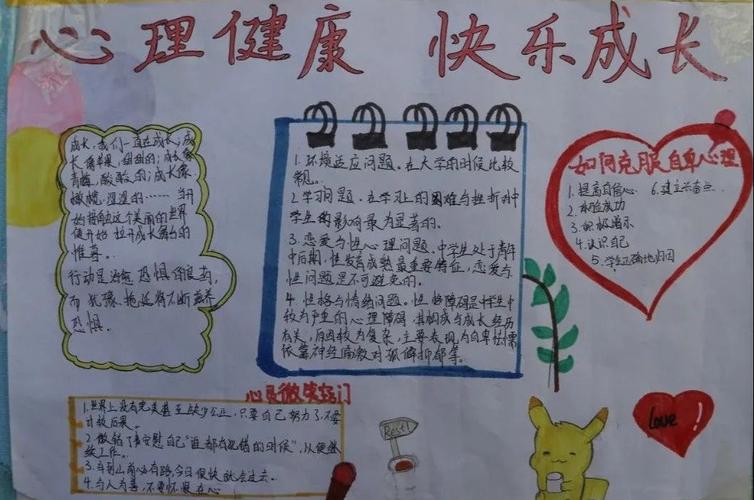 心理健康 快乐成长
成长,我们一直在成长;成
长像苹果,甜甜的;成长像
青梅,酸酸的;成长像
橄榄,涩涩的……当
这个美丽的世界
便开始拉开成长舞台的
帷幕。
行动是治愈恐惧的良药,
而犹豫、拖延将不断滋养
恐惧。
1.环境适应问题。在大学的时候比较
常见。
2.学习问题,在学习上的困难与挫折对中
学生的影响最为显著的。
3.恋爱与性心理问题、中学生处于青年
中后期,性发育成熟最重要特征,恋爱与
性问题是不可避免的。
4.性格与情绪问题。性格障碍是中学生中
较为严重的心理障碍 其构成与成长经历
有关,原因较为复杂,主要表现为自卑怯懦
依靠神经质敌对孤僻抑郁等。
如何克服自卑心理
1.提高自信心. 6.建立示留点
2.体验成功
3.积极暗示
4.认识自己
5.学生正确地归因
心灵微笑窍门
1.世界上没有完美甚至缺少公正,只要自己努力了,不要
计较后果。
2.做错了事安慰自己“谁都有犯错的时候”,从便继
续工作。
3.车到山前必有路,今日很快就会过去。
4.与人为善,不要怀疑在心
Rest!
love